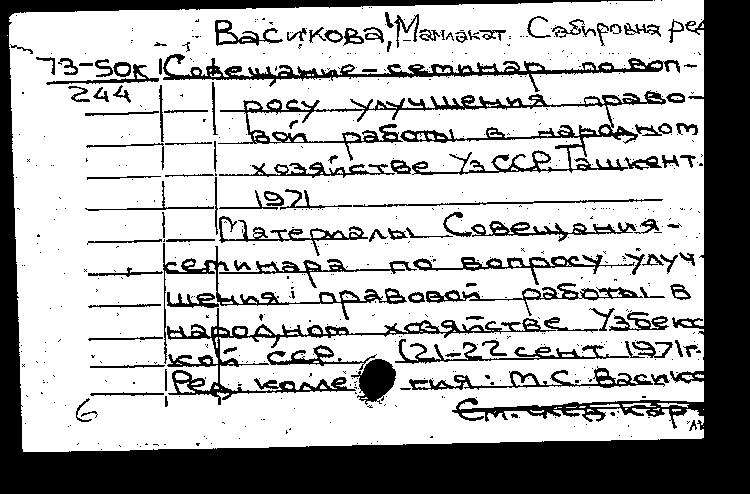 Васикова, Мамлакат Сабировна ред
73-50К Совещание-семинар по воп-
244
росу улучшения право-
вой работы в народном
хозяйстве УзССР. Ташкент.
1971
Материалы Совещания-
семинара по вопросу улуч-
шения правовой работы в
народном хозяйстве Узбекс
кой ССР. (21-22 сент. 1971г.
Ред. колле гия: М.С. Васико
6
См. след. карт